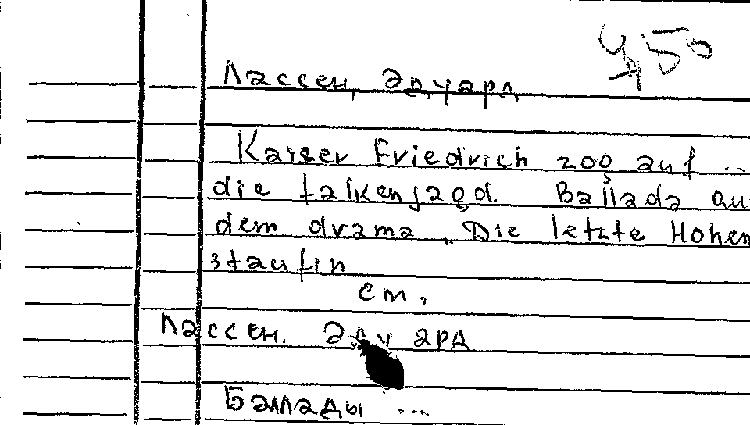 450
Лассен, Эдуард
Kaiser Friedrich zoo auf ...
die falkenjagd. Ballada au
dem drama „Die letzte Hohen
staufin
см.
Лассен. Эдуард
Баллады ...